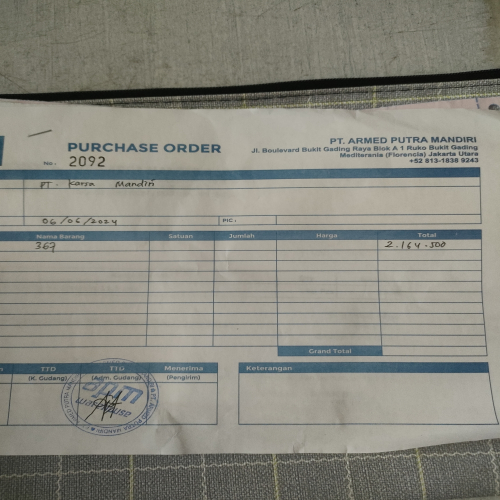 PURCHASE ORDER
No : 2092
PT. ARMED PUTRA MANDIRI
Jl. Boulevard Bukit Gading Raya Blok A 1 Ruko Bukit Gading
Mediterania (Florencia) Jakarta Utara
+52 813-1838 9243
PT. Karsa Mandiri
06/06/2024
PIC:
Nama Barang Satuan Jumlah Harga Total
369 2.164.500
Grand Total
TTD TTG Menerima
(K. Gudang) (Adm. Gudang) (Pengirim)
Keterangan
warehouse